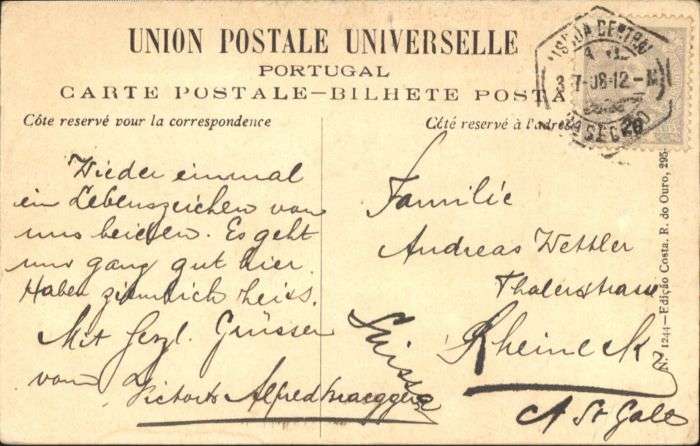 UNION POSTALE UNIVERSELLE
PORTUGAL
CARTE POSTALE—BILHETE POSTA
Côte reservé pour la correspondence
Côté reservé à l'adres
Wieder einmal
ein Lebenszeichen von
uns beiden. Es geht
uns ganz gut hier.
Haben ziemlich heiss.
Mit herzl. Grüssen
von
Alfred
Familie
Andreas Wettler
Thalerstrasse
Rheineck
Suisse
St Gall
LISBOA CENTRAL
3-7-08-12-M
SECÇÃO
N.º 1244—Edição Costa. R. do Ouro, 295-